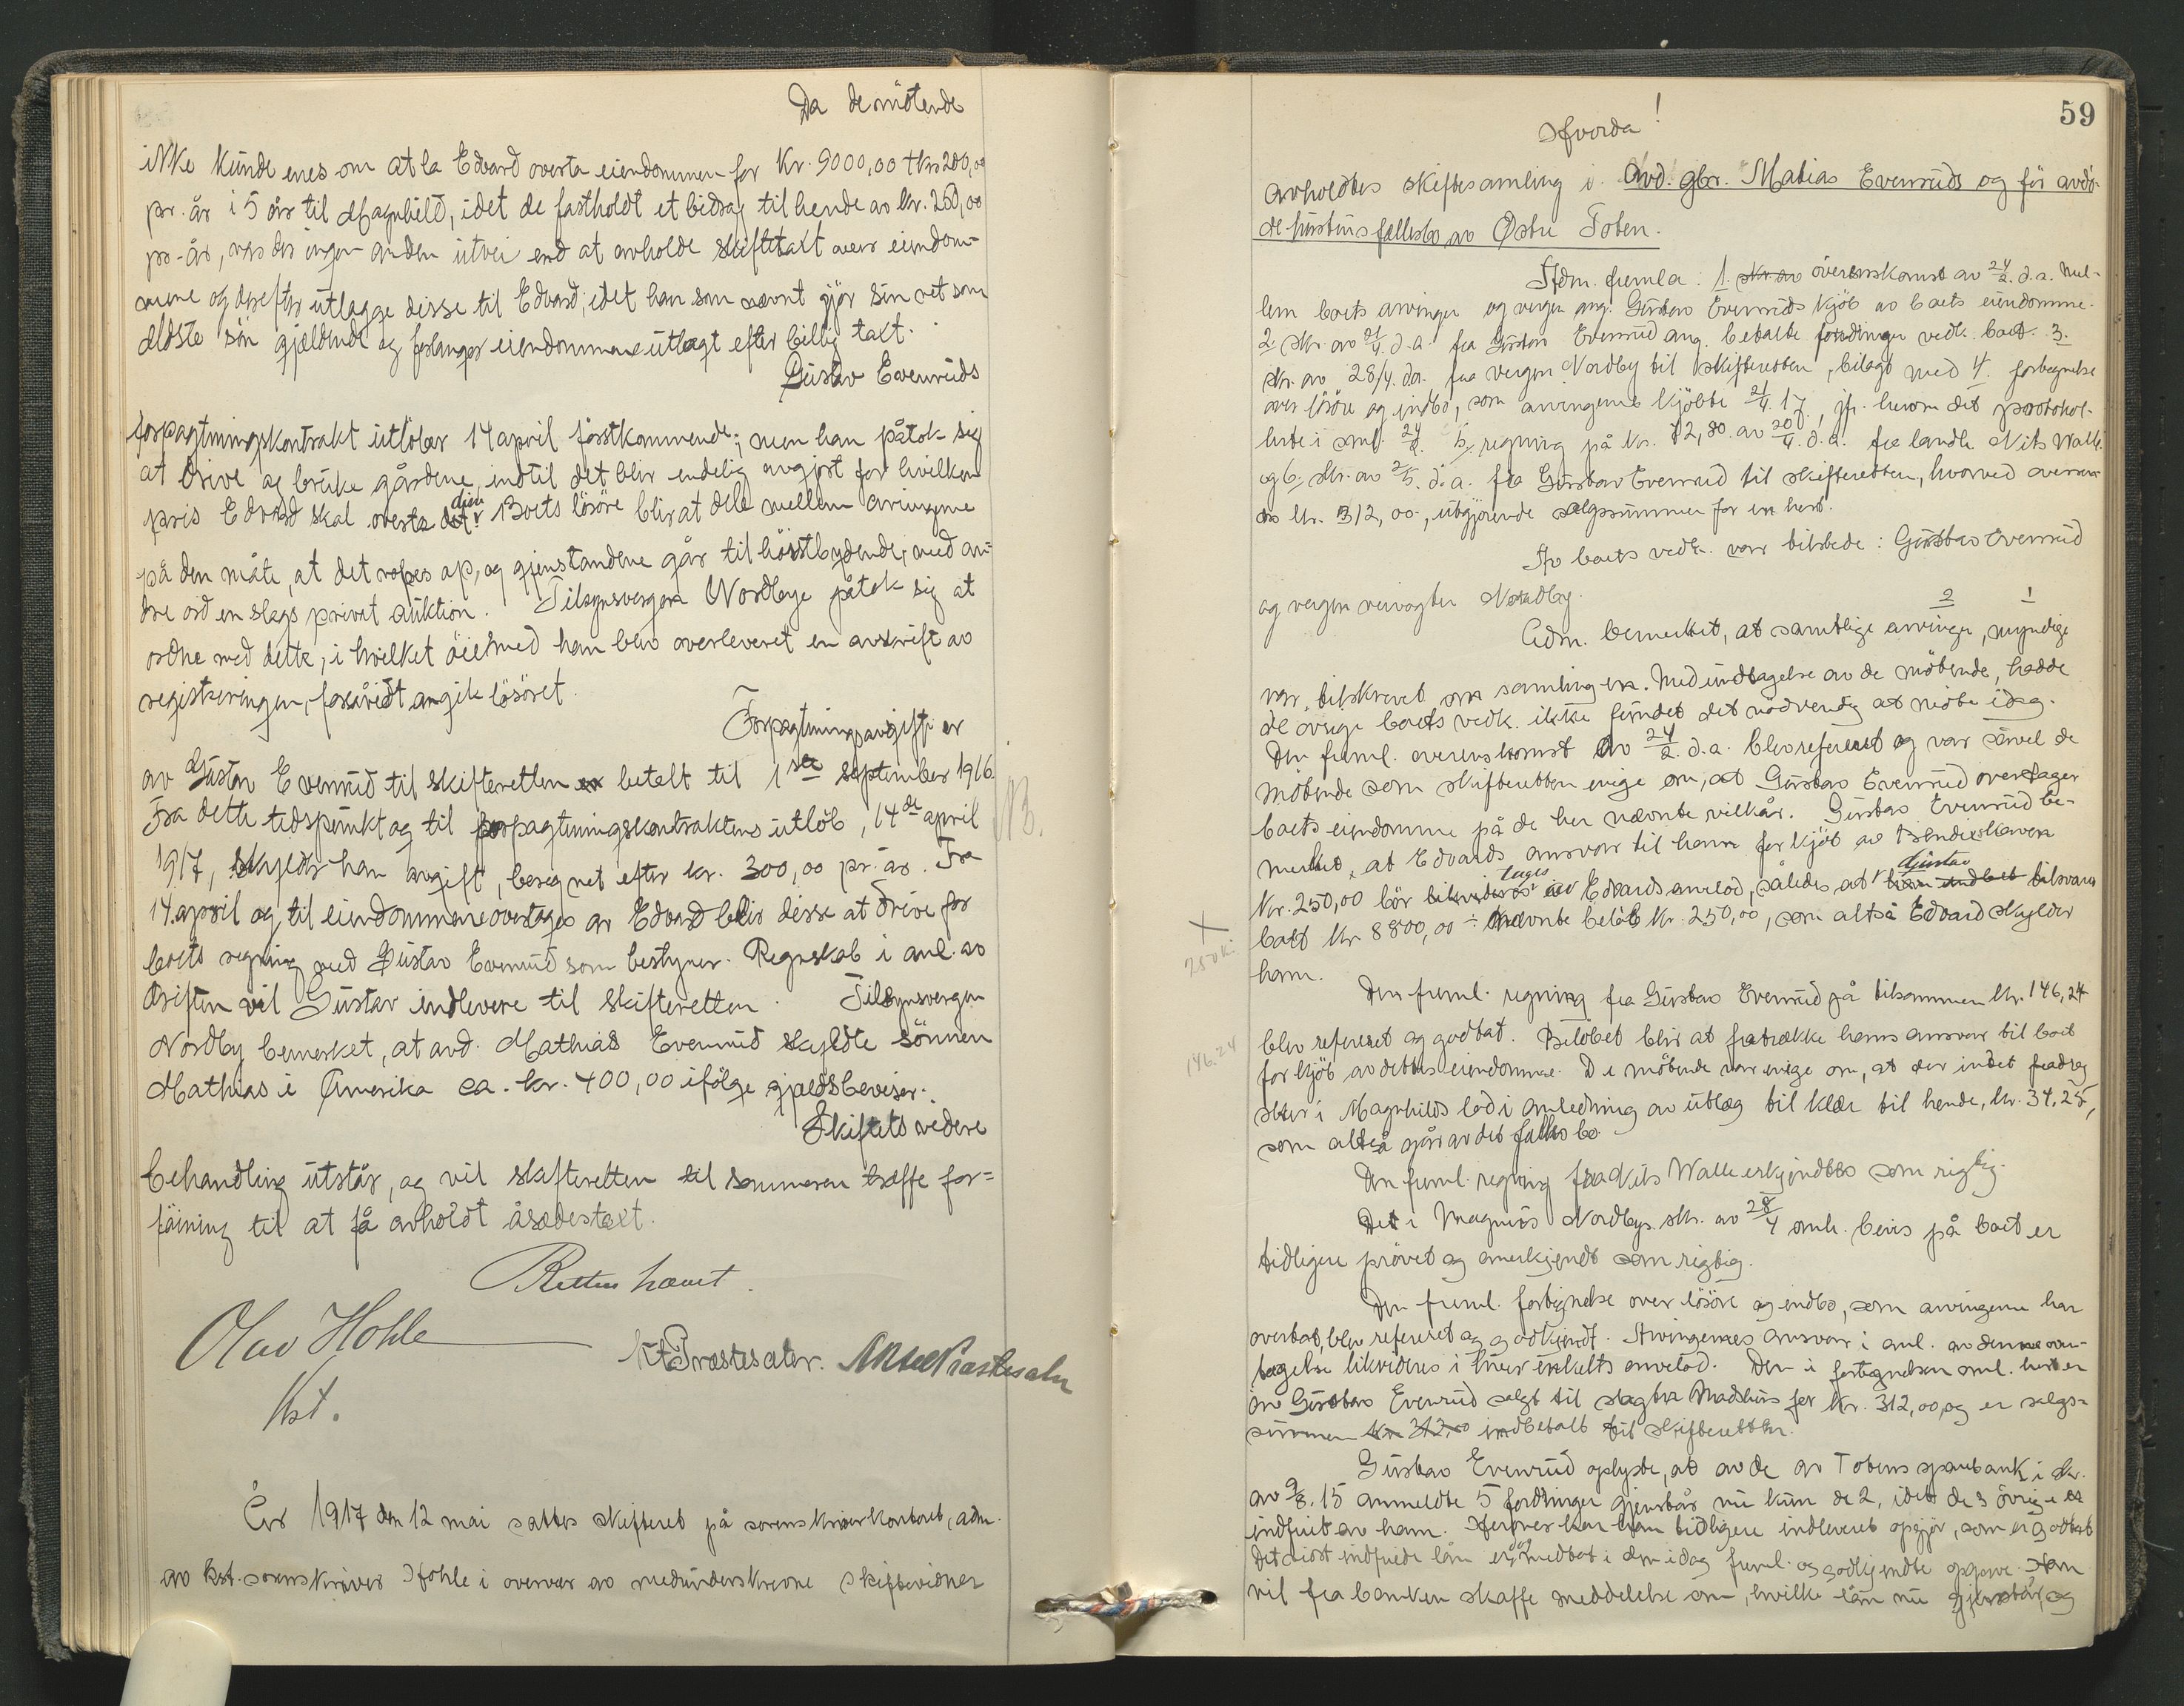 Da de møtende
ikke kunde enes om at la Edvard overta eiendommen for Kr. 9000,00 + kr 200,00
pr. år i 5 år til Magnhild, idet de fastholdt et bidrag til hende av kr. 250,00
pr. år, var der ingen anden utvei end at avholde skiftetakt over eiendom-
mene og derefter utlægge disse til Edvard, idet han som nævnt gjør sin ret som
eldste søn gjældende og forlanger eiendommene utlagt efter billig takt.
Gustav Evenruds
forpagtningskontrakt utløber 14 april førstkommende; men han påtok sig
at drive og bruke gårdene, indtil det blir endelig avgjort for hvilken
pris Edvard skal overta disse. Boets løsøre blir at dele mellem arvingerne
på den måte, at det ropes op, og gjenstandene går til høistbydende, med an-
dre ord en slags privat auktion. Tilsynsvergen Nordbye påtok sig at
ordne med dette, i hvilket øiemed han blev overleveret en avskrift av
registreringen, forsåvidt angik løsøret.
Forpagtningsavgift er
av Gustav Evenrud til skifteretten betalt til 1ste september 1916.
Fra dette tidspunkt og til forpagtningskontraktens utløb, 14de april
NB.
1917, skylder han avgift, beregnet efter kr. 300,00 pr. år. Fra
14. april og til eiendommene overtages av Edvard blir disse at drive for
boets regning med Gustav Evenrud som bestyrer. Regnskab i anl. av
driften vil Gustav indlevere til skifteretten. Tilsynsvergen
Nordby bemerket, at avd. Mathias Evenrud skyldte sønnen
Mathias i Amerika ca. kr. 400,00 ifølge gjældsbeviser.
Skiftets videre
behandling utstår, og vil skifteretten til sommeren træffe for-
føining til at få avholdt åsædestakt.
Retten hævet.
Olav Hohle
Kst.
K. Præstesæter. Præstesæter
År 1917 den 12 mai sattes skifteret på sorenskriverkontoret, adm.
av kst. sorenskriver Hohle i overvær av medunderskrevne skiftevidner
59
Hvorda!
avholdtes skiftesamling i avd. gbr. Matias Evenruds og før avdø-
de hustrus fællesbo av Østre Toten.
Adm. fremla: 1. overenskomst av 24/2. d.a. mel-
lem boets arvinger og verger ang. Gustav Evenruds kjøb av boets eiendomme.
2 skr. av 21/4. d.a. fra Gustav Evenrud ang. betalte fordringer vedk. boet. 3.
Skr. av 28/4. d.a. fra vergen Nordby til skifteretten, bilagt med 4. fortegnelse
over løsøre og indbo, som arvingerne kjøbte 21/4. 17, jfr. herom det protokol-
lerte i saml. 24/2. 5. regning på kr. 12,80. av 20/4. d.a. fra landh. Nils Walle
og 6. skr. av 2/5. d.a. fra Gustav Evenrud til skifteretten, hvorved oversen-
des kr. 312,00, utgjørende salgssummen for en hest.
Av boets vedk. var tilstede: Gustav Evenrud
og vergen veivogter Nordby.
2 1
Adm. bemerket, at samtlige arvinger, myndige
var tilskrevet om samlingen. Med undtagelse av de møtende, hadde
de øvrige boets vedk. ikke fundet det nødvendig at møte idag.
Den freml. overenskomst av 24/2. d.a. blev referert og var såvel de
møtende som skifteretten enige om, at Gustav Evenrud overtager
boets eiendomme på de her nævnte vilkår. Gustav Evenrud be-
merket, at Edvards ansvar til ham for kjøb av
Kr. 250,00 bør tages av Edvards arvelod, således at Gustav tilsvarer
X
250 k.
boet kr. 8800,00 ÷ nævnte beløb kr. 250,00, som altså Edvard skylder
ham.
Den freml. regning fra Gustav Evenrud på tilsammen kr. 146,24
146.24
blev referert og godtat. Beløbet blir at fratrække hans ansvar til boet
for kjøb av dettes eiendomme. De møtende var enige om, at der intet fradrag
sker i Magnhilds lod i anledning av utlæg til klær til hende, kr. 34,25,
som altså går av det fælles bo.
Den freml. regning fra Nils Walle erkjendtes som rigtig.
Det i Magnus Nordbys skr. av 28/4 omh. bevis på boet er
tidligere prøvet og anerkjendt som rigtig.
Den freml. fortegnelse over løsøre og indbo, som arvingerne har
overtat, blev referert og godkjendt. Arvingernes ansvar i anl. av denne over-
tagelse likvideres i hver enkelts arvelod. Den i fortegnelsen oml. hest er
av Gustav Evenrud solgt til slagter Madshus for kr. 312,00, og er salgs-
summen kr 312,00 indbetalt til skifteretten.
Gustav Evenrud oplyste, at av de av Totens sparebank i skr.
av 9/8. 15 anmeldte 5 fordringer gjenstår nu kun de 2, idet de 3 øvrige er
indfriet av ham. Herover har han tidligere indleveret opgjør, som er godtat.
Det sidst indfriede lån er og medtat i den idag freml. og godkjendte opgave. Han
vil fra banken skaffe meddelelse om, hvilke lån nu gjenstår, og